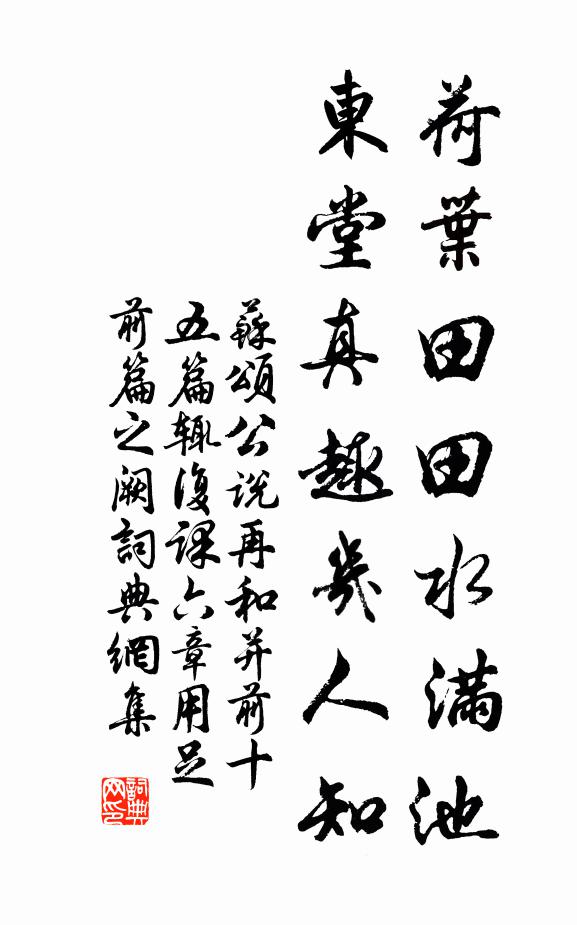 荷葉田田水滿池
東堂真趣幾人知
蘇頌公説再和并前十
五篇輒復課六章用足
前篇之闕詞典網集
詞典
网印